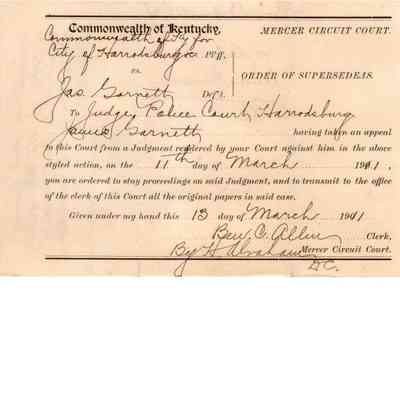 Commonwealth of Kentucky,
MERCER CIRCUIT COURT.
Commonwealth of Ky for
City of Harrodsburg Pl'ff.
vs.
Jas Garnett Def't.
ORDER OF SUPERSEDEAS.
To Judge, Police Court, Harrodsburg
James Garnett having taken an appeal
to this Court from a Judgment rendered by your Court against him in the above
styled action, on the 11th day of March 1911,
you are ordered to stay proceedings on said Judgment, and to transmit to the office
of the clerk of this Court all the original papers in said case.
Given under my hand this 13 day of March 1911
Ben. C. Allin Clerk,
By H Abraham Mercer Circuit Court.
D.C.